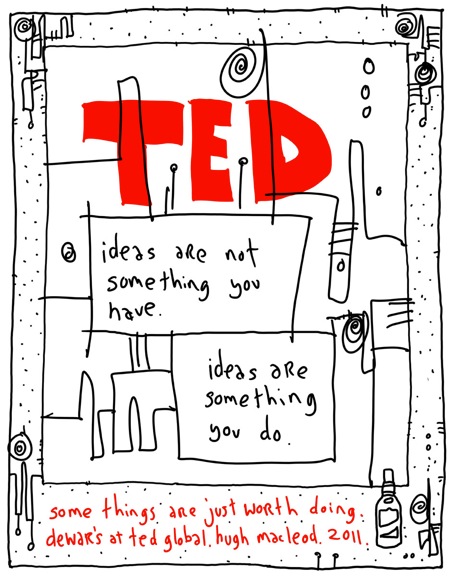 TED
ideas are not
something you
have.
ideas are
something
you do.
some things are just worth doing.
dewar's at ted global. hugh macleod. 2011.